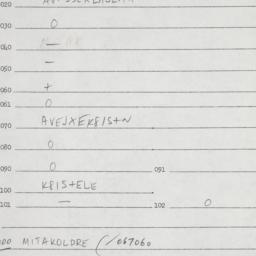 020
030 O
040 —
050 —
060 +
061 O
070 AVEJXEK8IS+N
080 O
090 O 091
100 K8IS+ELE
101 — 102 O
MITAKOLDRE (/067060